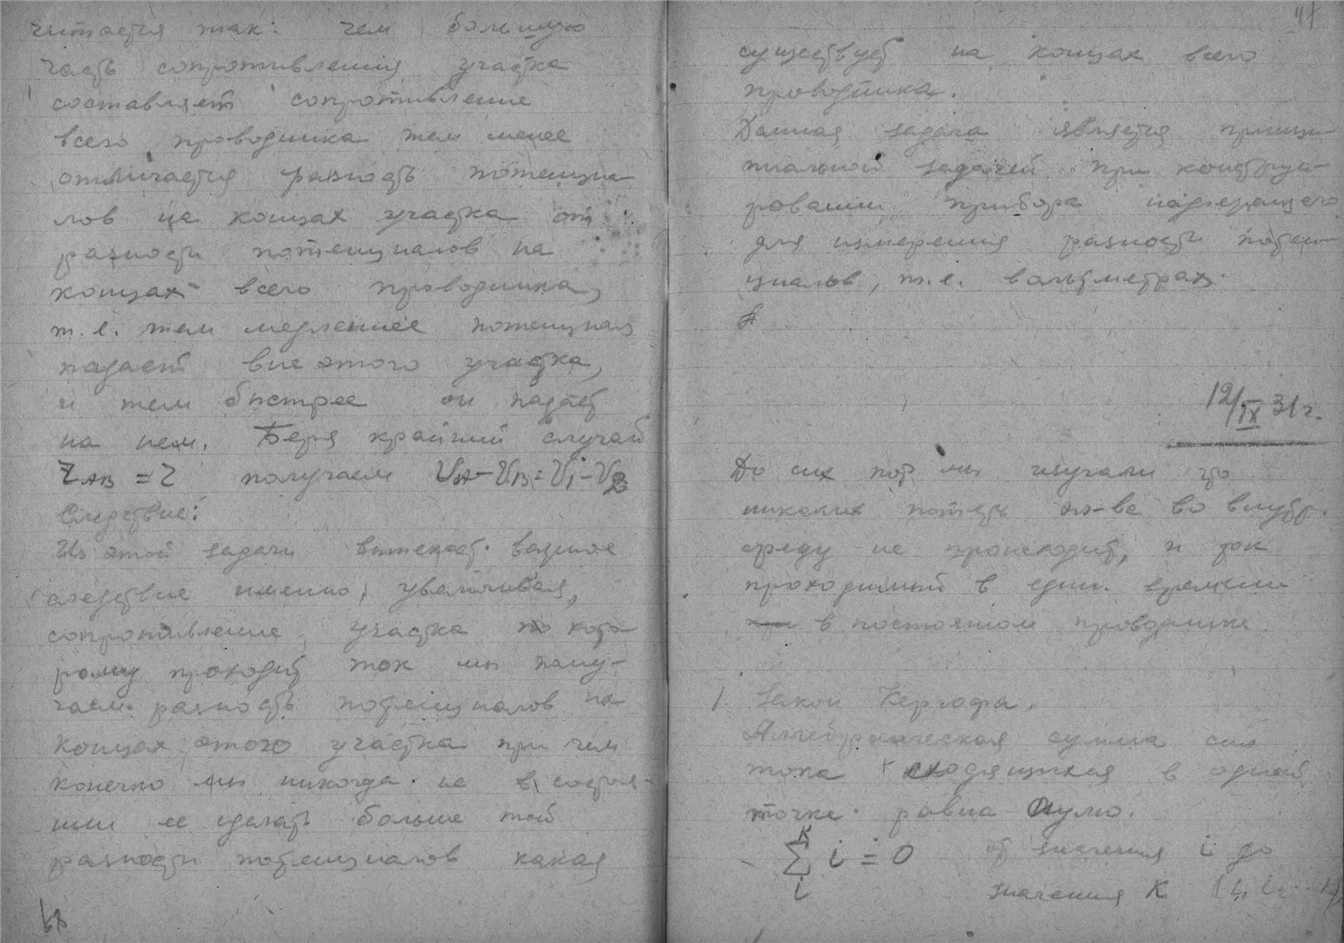 читается так: чем большую
часть сопротивления участка
составляет сопротивление
всего проводника тем менее
отличается разность потенциа
лов на концах участка от
разности потенциалов на
концах всего проводника,
т.е. тем медленнее потенциал
падает вне этого участка,
и тем быстрее он падает
на нем. Беря крайний случай
r_AB = r получаем V_A - V_B = V_1 - V_2
Следствие:
Из этой задачи вытекает важное
следствие именно, увеличивая,
сопротивление участка по кото
рому проходит ток мы полу-
чаем разность потенциалов на
концах этого участка при чем
конечно мы никогда не в состоя-
нии ее сделать больше той
разности потенциалов какая
47
существует на концах всего
проводника.
Данная задача является принци-
пиальной задачей при конструи-
ровании прибора
для измерения разности потен-
циалов, т.е. вольтметрах.
12/IX 31 г.
До сих пор мы изучали что
никаких потерь эл-ва во внутр.
среду не происходит, и ток
проходимый в един. времени
в постоянном проводнике
1 Закон Кергофа.
Алгебраическая сумма сил
тока сходящихся в одной
точке равна нулю.
K
∑ i = 0 от значения i до
i значения K